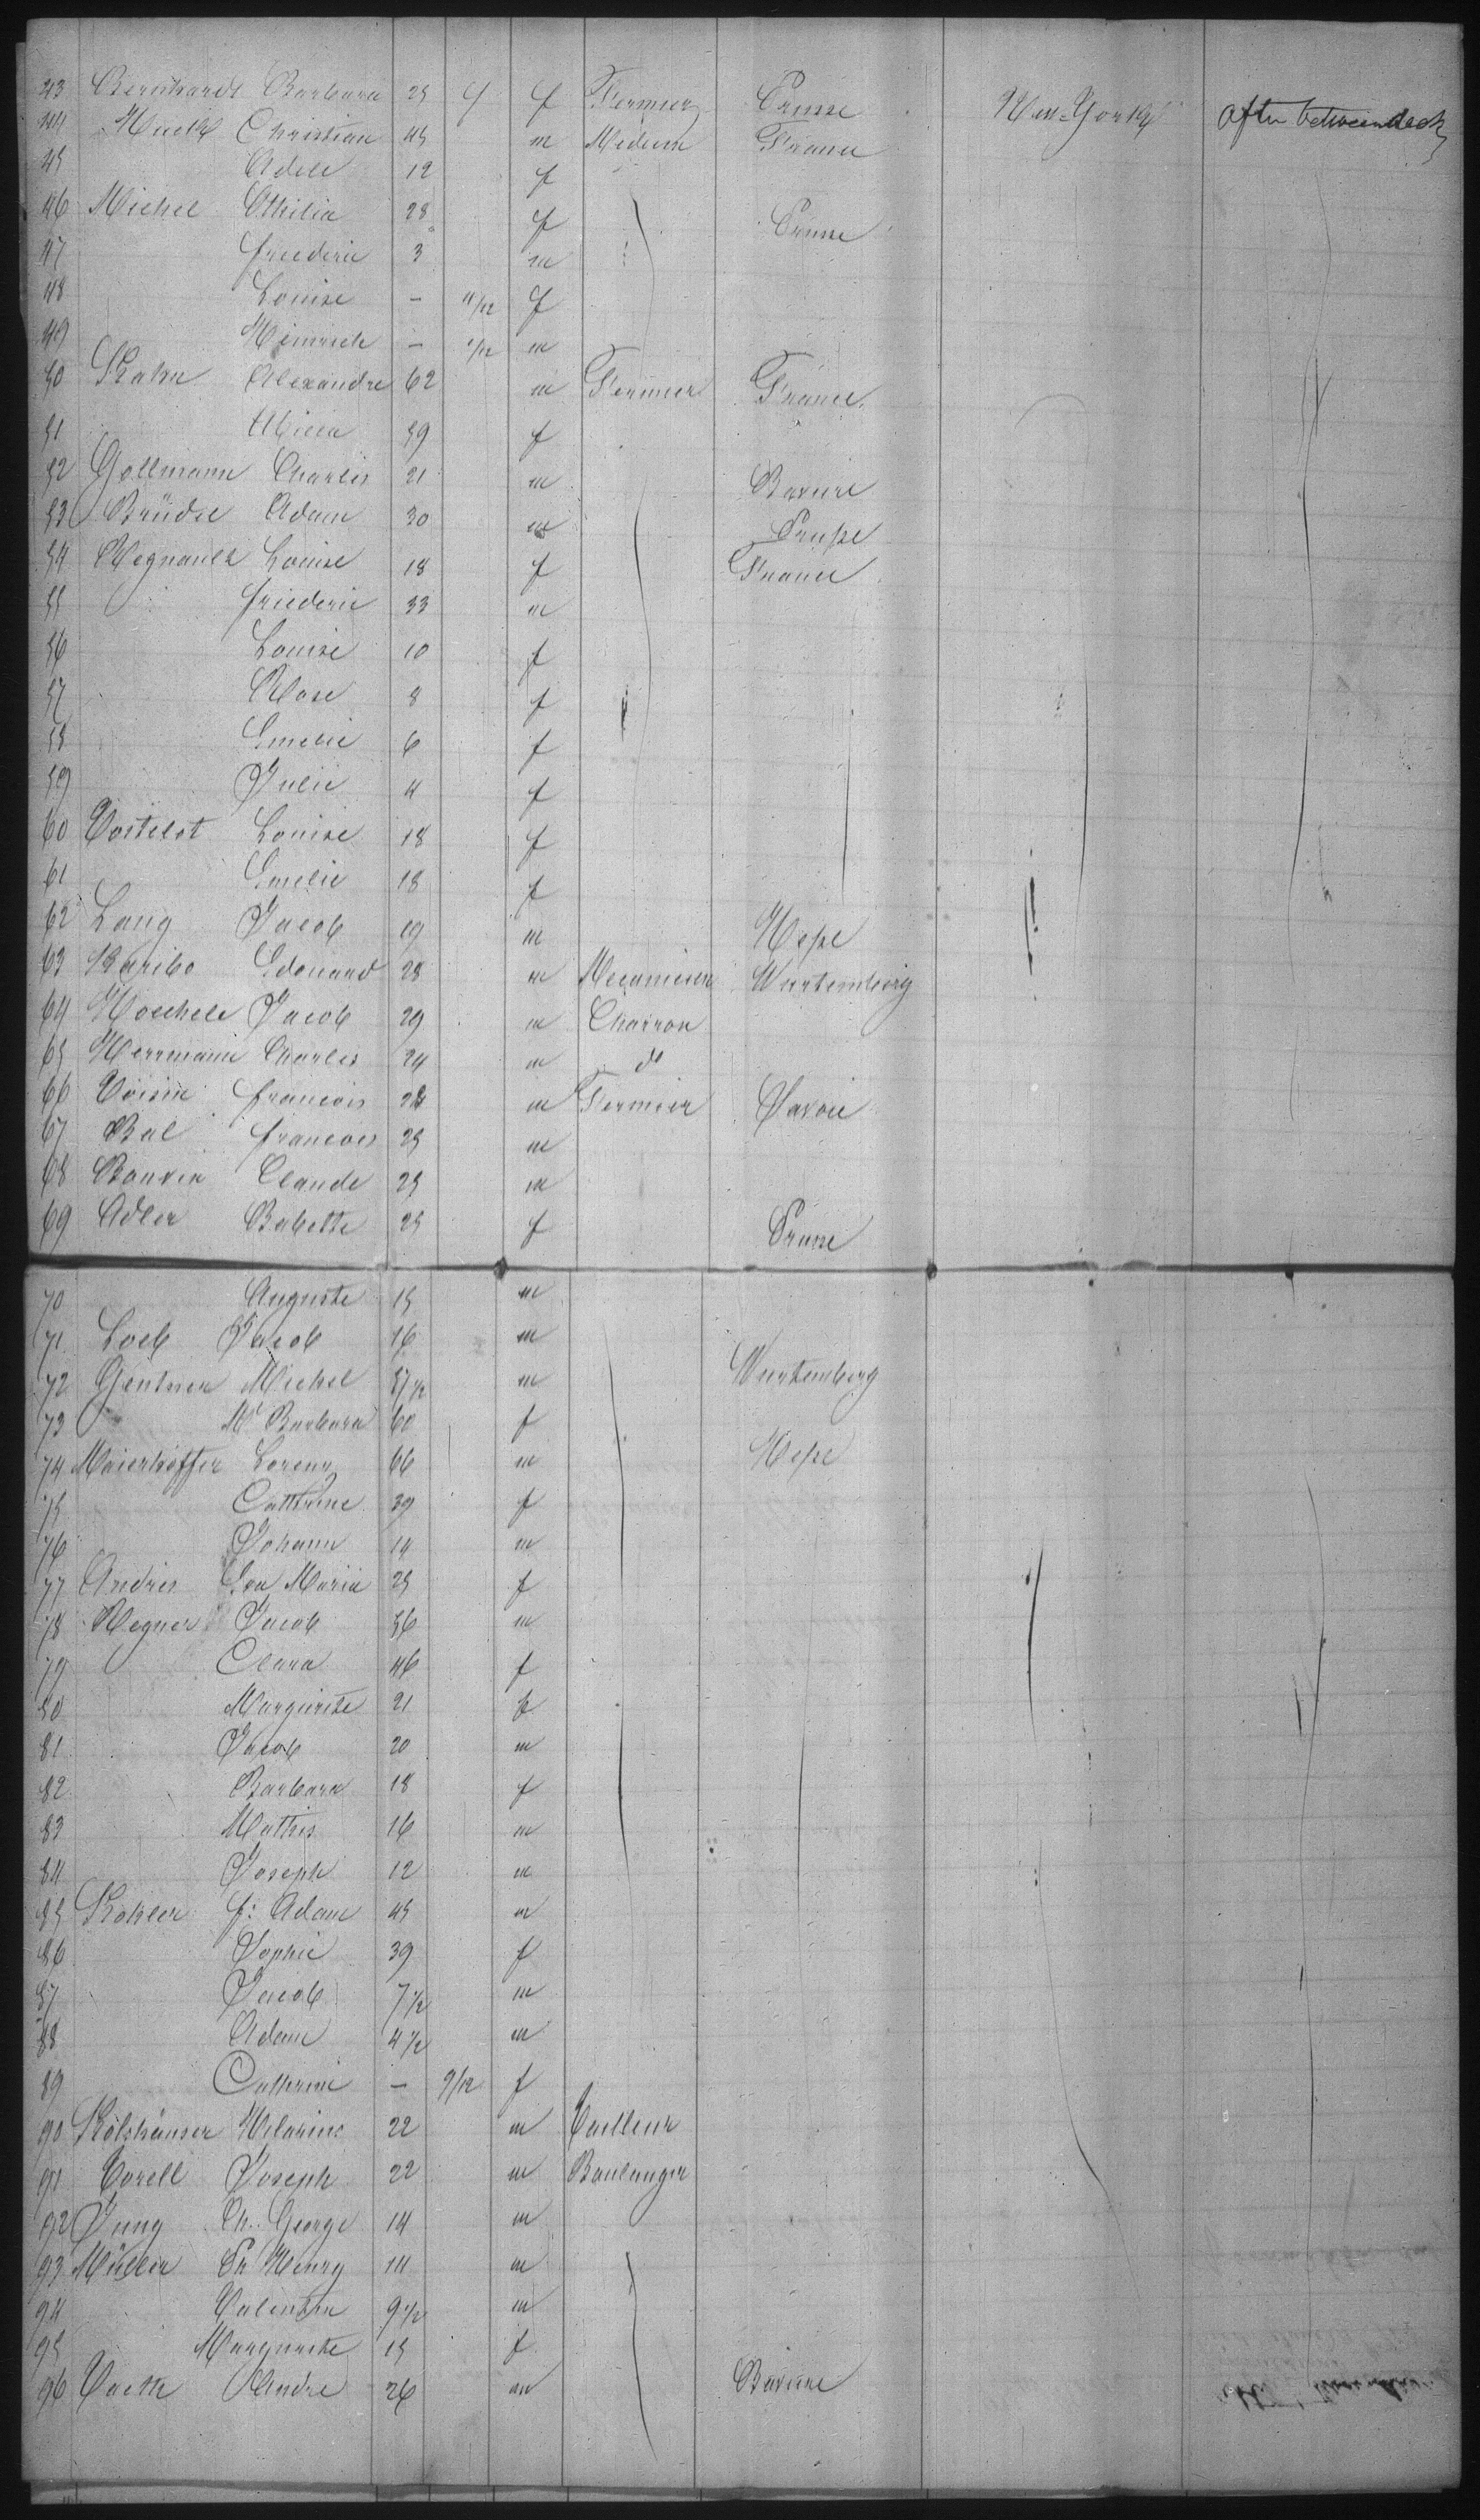 43 Bernhardt Barbara 25 f Fermier Prusse New-York After betweendeck
44 Muth Christian 45 m Medecin France
45 Adele 12 f
46 Michel Othilia 28 f Prusse
47 friederic 3 m
48 Louise - 11/12 f
49 Heinrich - 1/12 m
50 Kahn Alexandre 62 m Fermier France
51 59 f
52 Gollmann Charles 21 m Baviere
53 Brüdse Adam 30 m Prusse
54 Regnault Louise 18 f France
55 friederic 33 m
56 Louise 10 f
57 Rose 8 f
58 Emelie 6 f
59 Julie 4 f
60 Vostelot Louise 18 f
61 Emelie 18 f
62 Lang Jacob 19 m Hesse
63 Karibo Edouard 28 m Mecanicien Wurtemberg
64 Hoechele Jacob 29 m Charron
65 Herrmann Charles 24 m do
66 Voisin francois 28 m Fermier Savoie
67 Bal francois 25 m
68 Bouvin Claude 25 m
69 Adler Babette 25 f Prusse
70 Auguste 15 m
71 Loeb Jacob 16 m
72 Gentner Michel 57 1/2 m Wurtemberg
73 Me Barbara 60 f
74 Maierhoffer Lorenz 66 m Hesse
75 Cathrine 39 f
76 Johann 14 m
77 Andres Eva Maria 25 f
78 Regner Jacob 56 m
79 Clara 46 f
80 Margurite 21 f
81 Jacob 20 m
82 Barbara 18 f
83 Mathis 16 m
84 Joseph 12 m
85 Kohler f: Adam 45 m
86 Sophie 39 f
87 Jacob 7 1/2 m
88 Adam 4 1/2 m
89 Cathrine - 9/12 f
90 Kolshäuser Hilarius 22 m Tailleur
91 Torell Joseph 22 m Boulanger
92 Jung Ch. George 14 m
93 Müller Ph Henry 14 m
94 Valentin 9 1/2 m
95 Margurite 15 f
96 Vaeth Andre 26 m Baviere